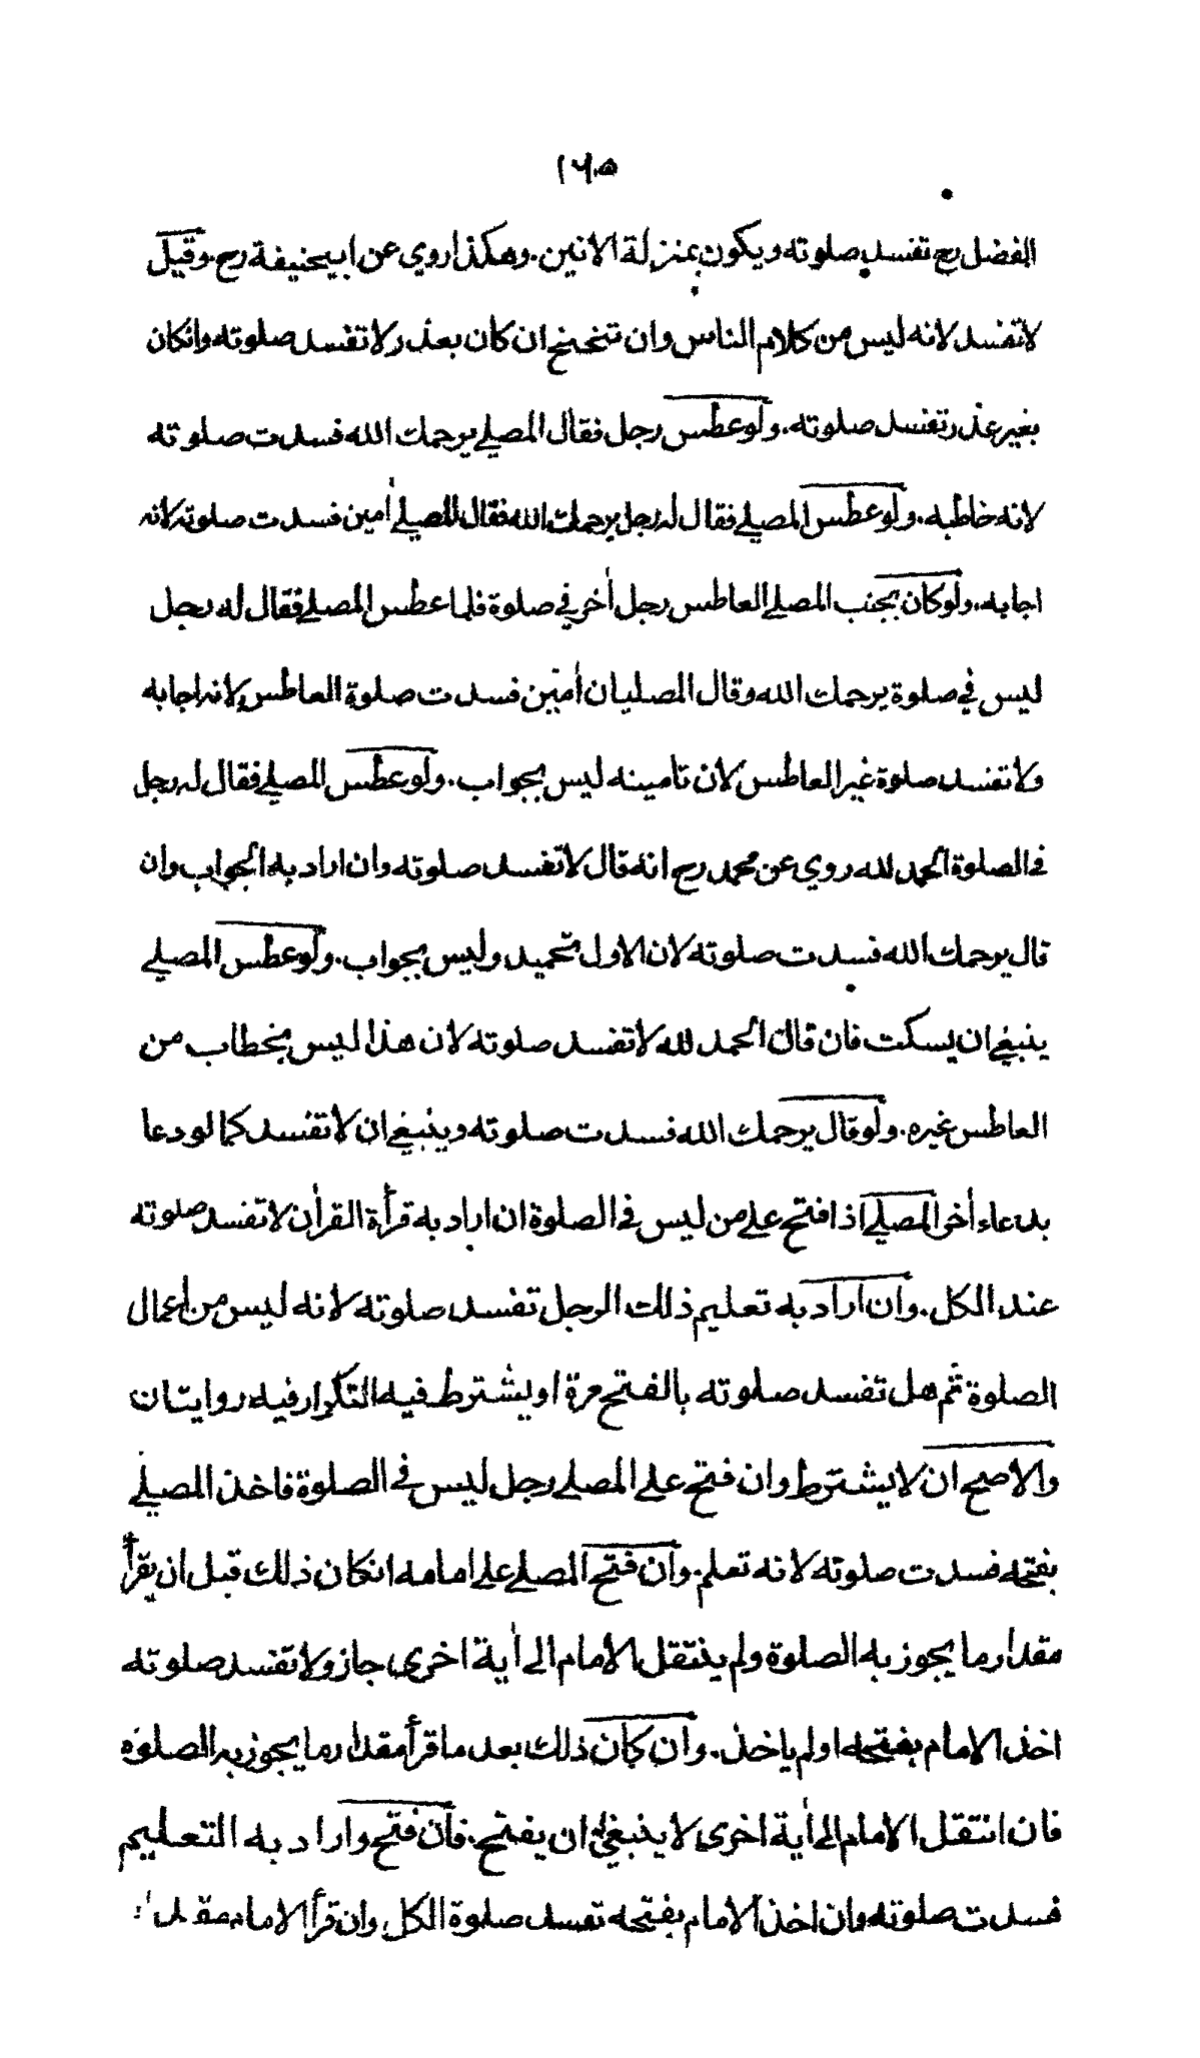 ١٦٥
الفضل رح تفسد صلوته ويكون بمنزلة الانين. وهكذا روي عن ابيحنيفة رح. وقيل
لا تفسد لانه ليس من كلام الناس وان تنحنح ان كان بعذر لا تفسد صلوته وانكان
بغير عذر تفسد صلوته. ولو عطس رجل فقال المصلي يرحمك الله فسدت صلوته
لانه خاطبه. ولو عطس المصلي فقال له رجل يرحمك الله فقال المصلي أمين فسدت صلوته لانه
اجابه. ولو كان بجنب المصلي العاطس رجل أخر في صلوة فلما عطس المصلي فقال له رجل
ليس في صلوة يرحمك الله وقال المصليان أمين فسدت صلوة العاطس لانه اجابه
ولا تفسد صلوة غير العاطس لان تامينه ليس بجواب. ولو عطس المصلي فقال له رجل
في الصلوة الحمد لله روي عن محمد رح انه قال لا تفسد صلوته وان اراد به الجواب وان
قال يرحمك الله فسدت صلوته لان الاول تحميد وليس بجواب. ولو عطس المصلي
ينبغي ان يسكت فان قال الحمد لله لا تفسد صلوته لان هذا ليس بخطاب من
العاطس غيره. ولو قال يرحمك الله فسدت صلوته وينبغي ان لا تفسد كما لو دعا
بدعاء أخر المصلي اذا فتح على من ليس في الصلوة ان اراد به قرأة القرأن لا تفسد صلوته
عند الكل. وان اراد به تعليم ذلك الرجل تفسد صلوته لانه ليس من اعمال
الصلوة ثم هل تفسد صلوته بالفتح مرة او يشترط فيه التكرار فيه روايتان
والاصح ان لا يشترط وان فتح على المصلي رجل ليس في الصلوة فاخذ المصلي
بفتحه فسدت صلوته لانه تعلم. وان فتح المصلي على امامه انكان ذلك قبل ان يقرأ
مقدار ما يجوز به الصلوة ولم ينتقل الامام الى أية اخرى جاز ولا تفسد صلوته
اخذ الامام بفتحه او لم ياخذ. وان كان ذلك بعد ما قرأ مقدار ما يجوز به الصلوة
فان انتقل الامام الى أية اخرى لا ينبغي له ان يفتح. فان فتح واراد به التعليم
فسدت صلوته وان اخذ الامام بفتحه تفسد صلوة الكل وان قرأ الامام مقدار